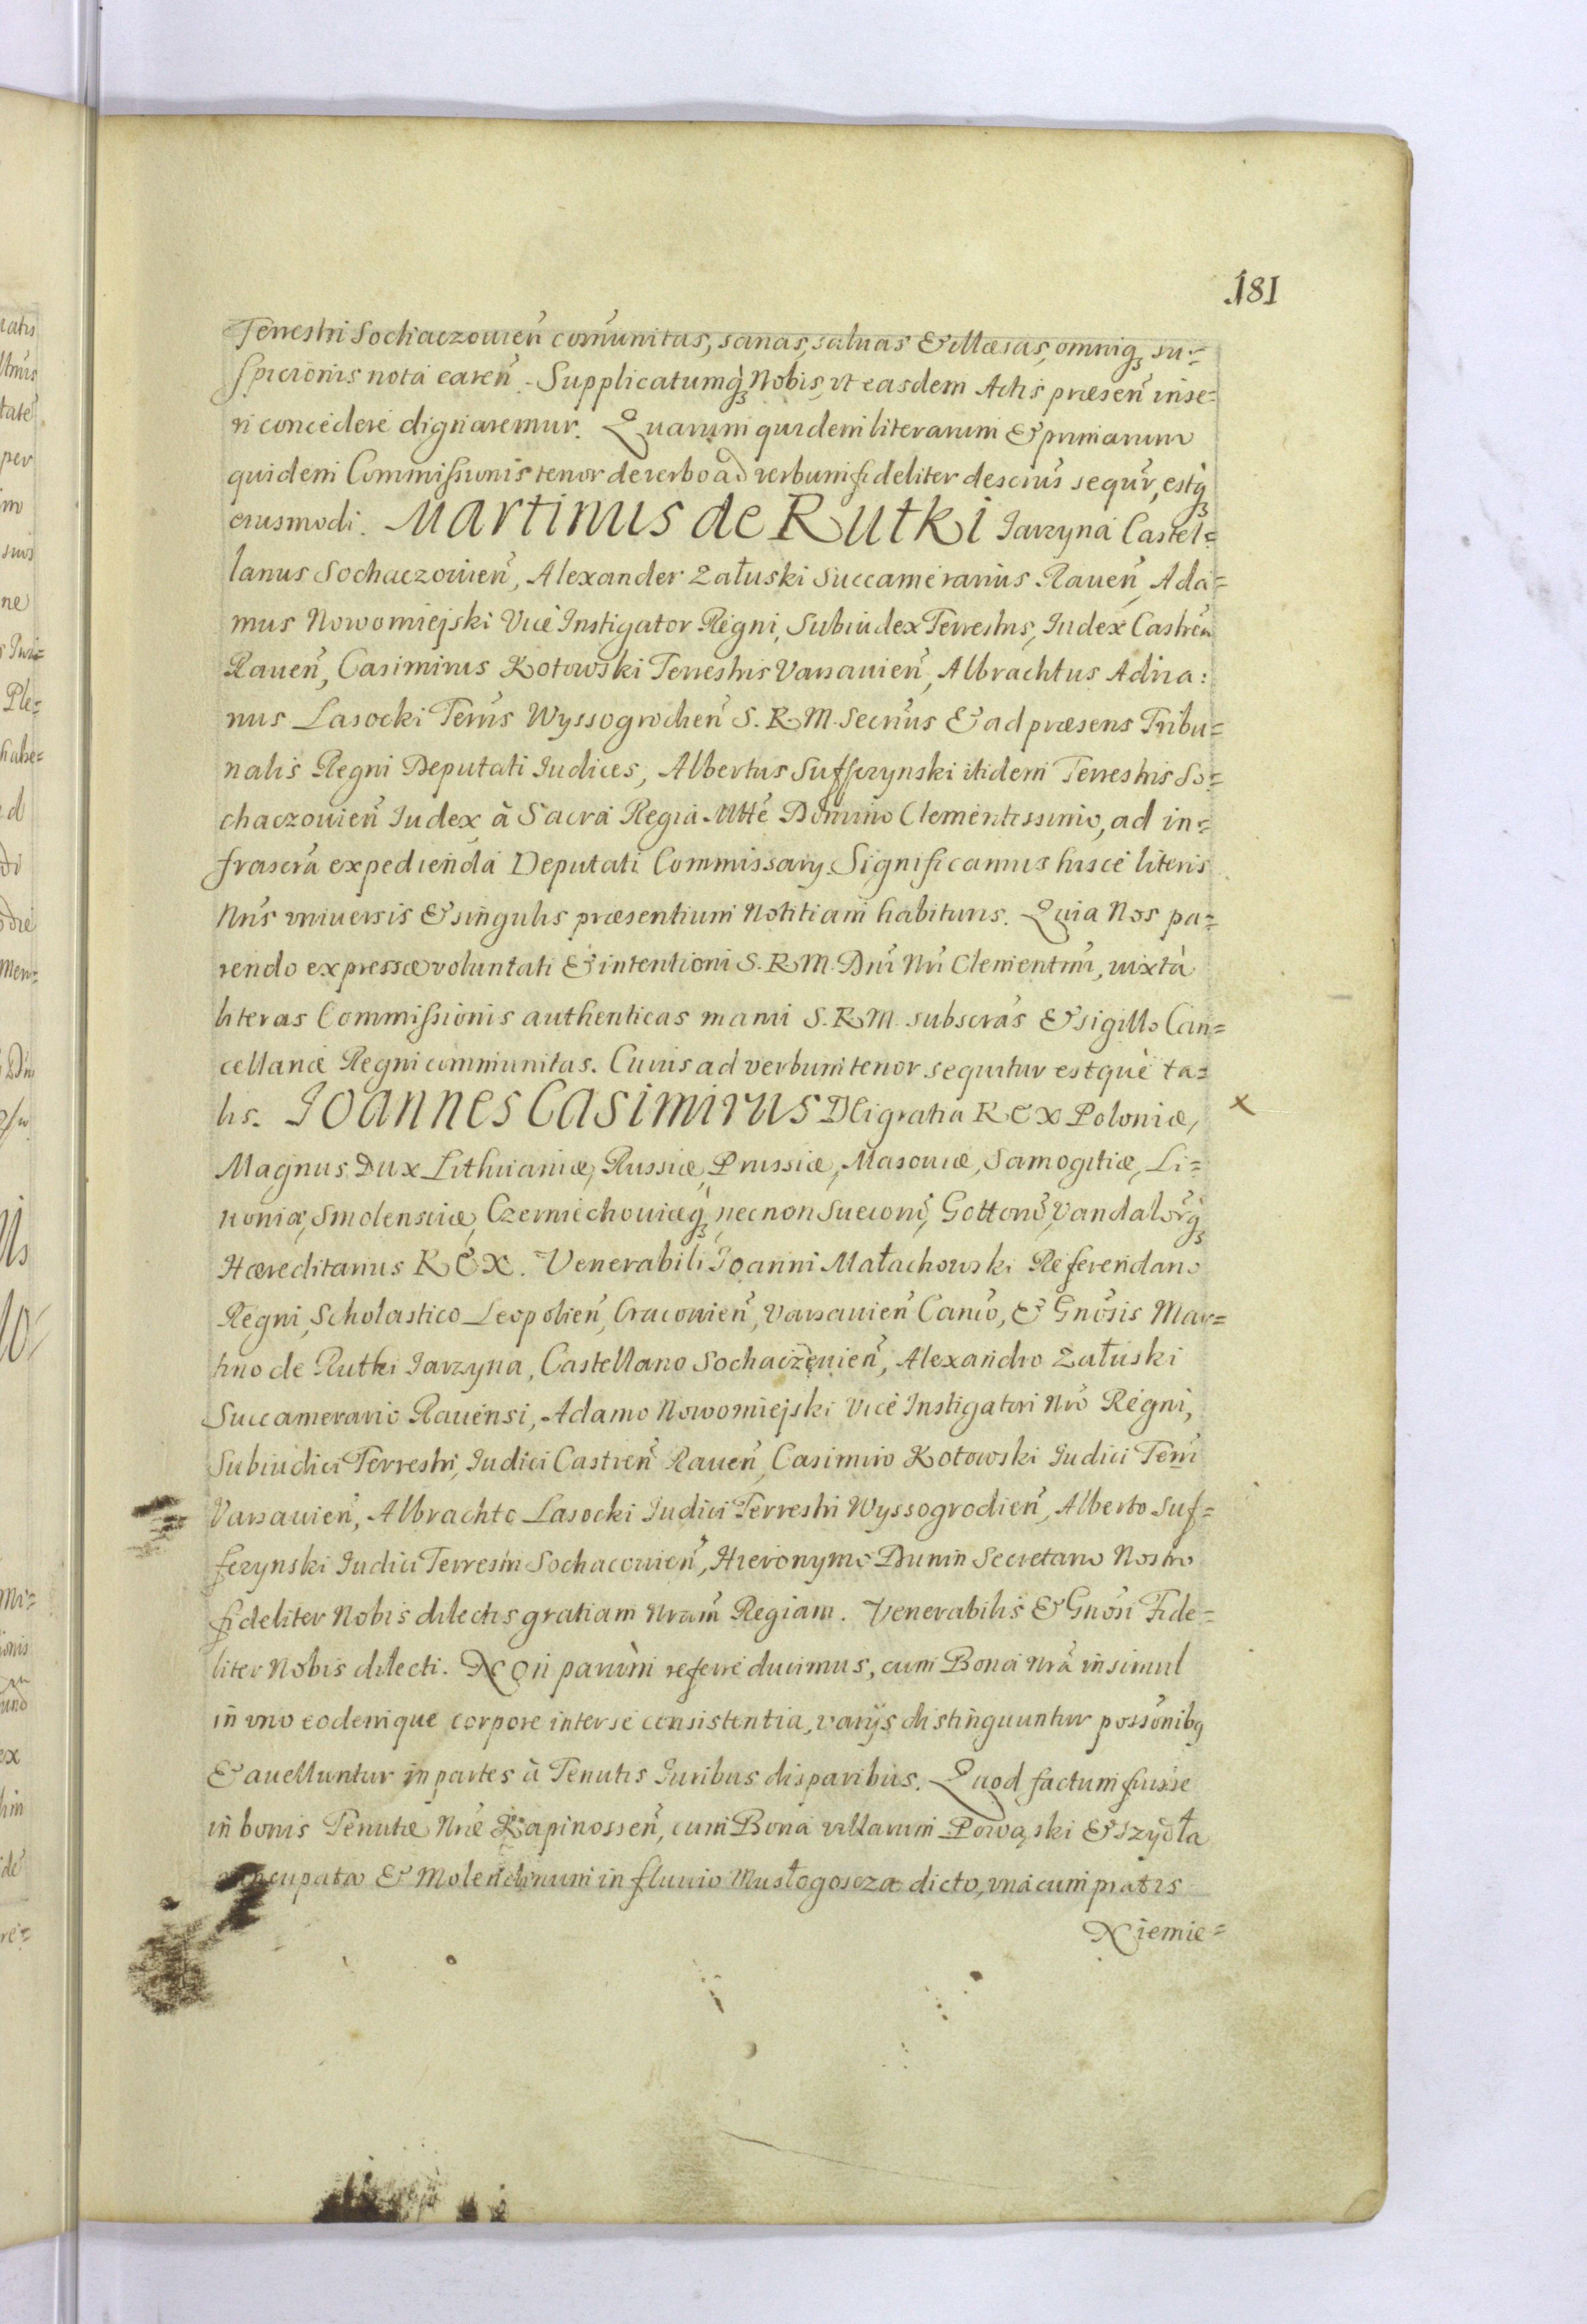 181
Terrestri Sochaczovien̄ com̄unitas, sanas, saluas & illæsas, omniq́ꝫ su=
spicionis notá caren̄. Supplicatumq́ꝫ Nobis, vt easdem Actis præsen̄ inse=
ri concedere dignaremur. Quarum quidem literarum & primarum
quidem Commissionis tenor de verbo ad verbum fideliter descrīus sequr̄, estq́ꝫ
eiusmodi. Martinus de Rutki Iarzyná Castel=
lanus Sochaczovien̄, Alexander Załuski Succamerarius Raven̄, Ada=
mus Nowomiejski Vice Instigator Regni, Subiudex Terrestris, Iudex Castren̄
Raven̄, Casimirus Kotowski Terrestris Varsavien̄, Albrachtus Adria:
nus Lasocki Ter̄ris Wyssogrodien̄ S. R. M. Secr̄ius & ad præsens Tribu=
nalis Regni Deputati Iudices, Albertus Suffczynski itidem Terrestris So=
chaczovien̄ Iudex à Sacrá Regiá Mtt̄e Domino Clementissimo, ad in=
frascr̄a expediendá Deputati Commissarij. Significamus hisce literis
Nr̄is vniversis & singulis præsentium Notitiam habituris. Quia Nos pa=
rendo expressæ voluntati & intentioni S. R. M. Dn̄i Nr̄i Clementmī, iuxtà
literas Commissionis authenticas manu S. R. M. subscrās & sigillo Can=
cellariæ Regni communitas. Cuius ad verbum tenor sequitur estquè ta=
lis. Ioannes Casimirus DEi gratia REX Poloniæ, x
Magnus Dux Lithuaniæ, Russiæ, Prussiæ, Masoviæ, Samogitiæ, Li=
voniæ, Smolensciæ, Czerniechoviæq́ꝫ, necnon Suecorū, Gottorū, Vandalorū́qꝫ
Hæreditarius REX. Venerabili Ioanni Małachowski Referendario
Regni, Scholastico Leopolien̄, Cracovien̄, Varsavien̄ Can̄co, & Gn̄osis Mar=
tino de Rutki Iarzyna, Castellano Sochaczevien̄, Alexandro Załuski
Succamerario Ravensi, Adamo Nowomiejski Vice Instigatori Nr̄o Regni,
Subiudici Terrestri, Iudici Castren̄ Raven̄, Casimiro Kotowski Iudici Ter̄ri
Varsavien̄, Albrachto Lasocki Iudici Terrestri Wyssogrodien̄, Alberto Suf=
fczynski Iudici Terrestri Sochacovien̄, Hieronymo Dunin Secretario Nostro
fideliter Nobis dilectis gratiam Nram̄ Regiam. Venerabilis & Gn̄osi Fide=
liter Nobis dilecti. Non parùm referre ducimus, cum Bona Nrā insimul
in vno eodemque corpore inter se consistentia, varijs distinguuntur possōnibꝫ
& avelluntur in partes à Tenutis Iuribus disparibus. Quod factum fuisse
in bonis Tenutæ Nr̄æ Kapinossen̄, cum Bona villarum Powąski & Szydła
nuncupata & Molendinum in fluvio Musłogoscza dicto, vná cum pratis
Niemie=